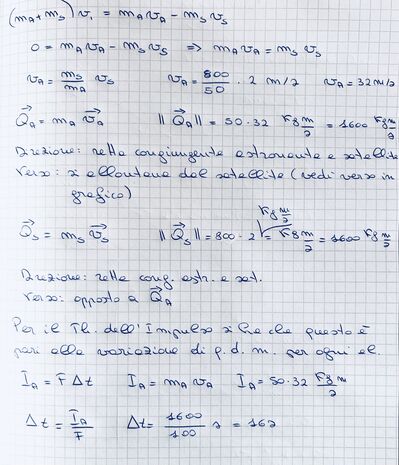 (m_A + m_S) v_i = m_A v_A - m_S v_S
0 = m_A v_A - m_S v_S => m_A v_A = m_S v_S
v_A = m_S/m_A v_S v_A = 800/50 · 2 m/s v_A = 32 m/s
Q⃗_A = m_A v⃗_A ||Q⃗_A|| = 50·32 Kg m/s = 1600 Kg m/s
Direzione: retta congiungente astronauta e satellite
Verso: si allontana dal satellite (vedi verso in
grafico)
Q⃗_S = m_S v⃗_S ||Q⃗_S|| = 800·2 Kg m/s = 1600 Kg m/s
Direzione: retta cong. astr. e sat.
Verso: opposto a Q⃗_A
Per il Th. dell'Impulso si ha che questo è
pari alla variazione di q.d.m. per ogni el.
I_A = F Δt I_A = m_A v_A I_A = 50·32 Kg m/s
Δt = I_A/F Δt = 1600/100 s = 16s